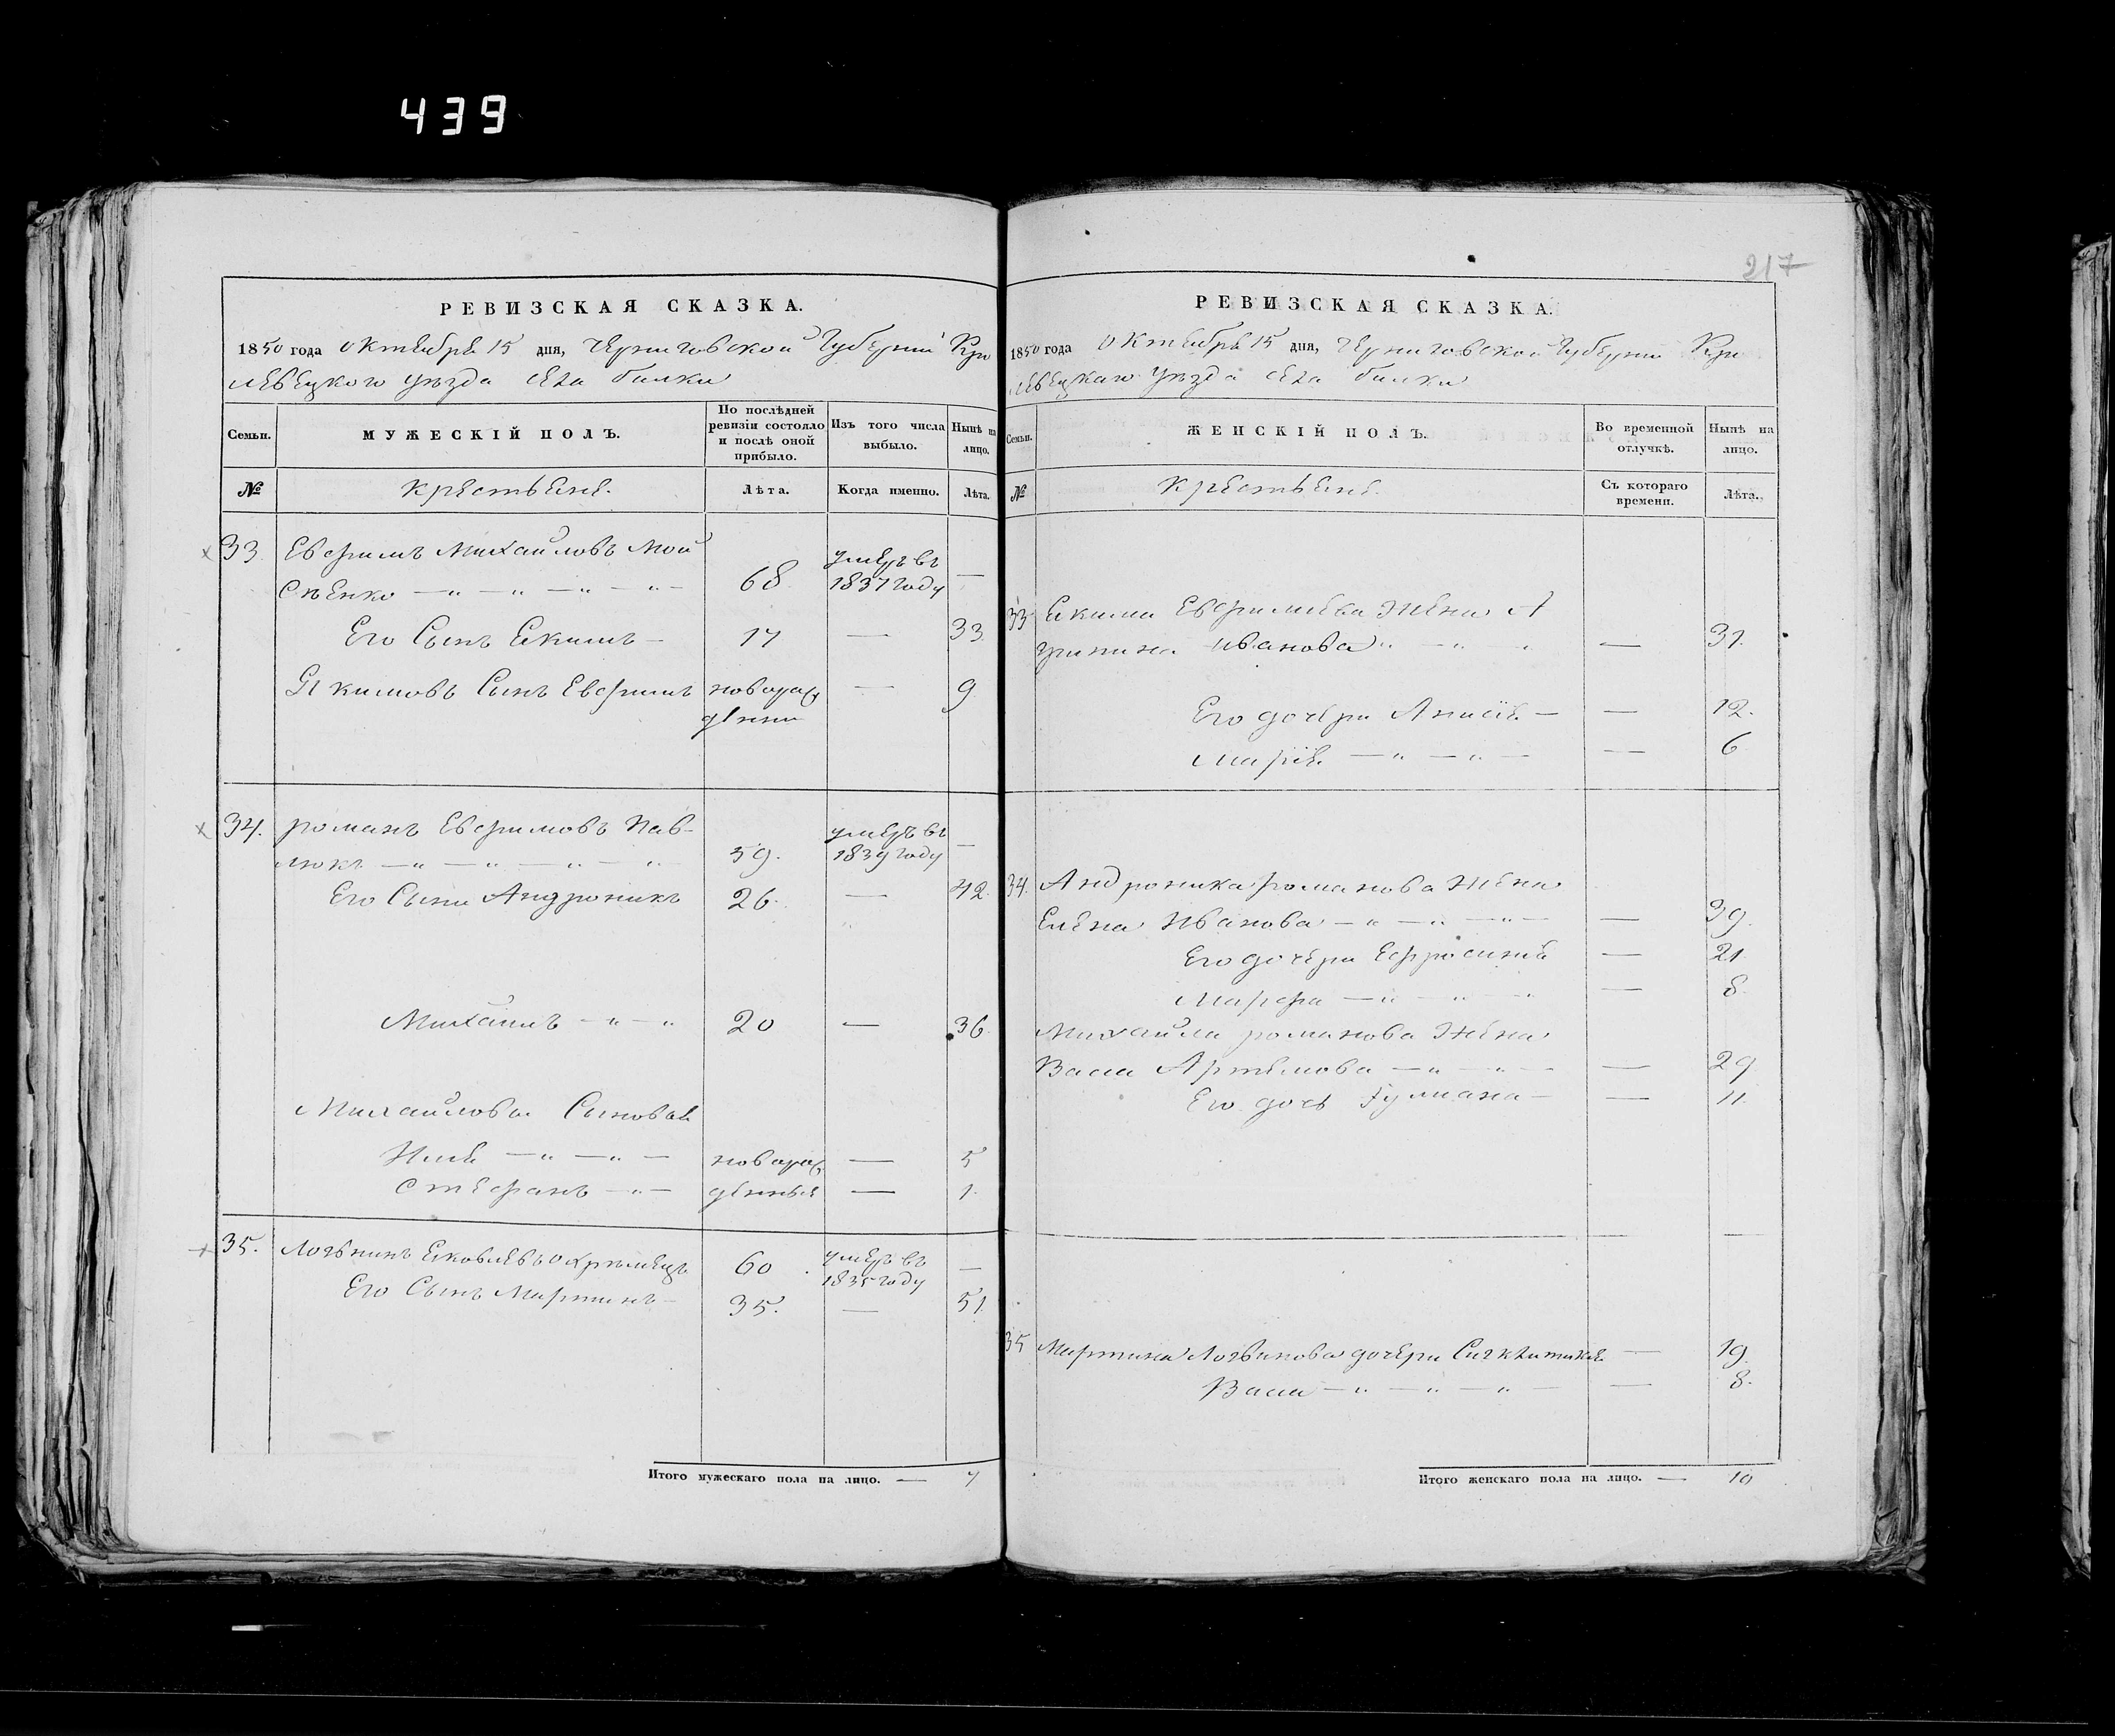 439
217
РЕВИЗСКАЯ СКАЗКА.
1850 года Октября 15 дня, Черниговской Губерніи Кро
левецкого уѣзда села билки
Семьи.
МУЖЕСКІЙ ПОЛЪ.
По послѣдней ревизіи состояло и послѣ оной прибыло.
Изъ того числа выбыло.
Нынѣ на лицо.
№
Крестьяне.
Лѣта.
Когда именно.
Лѣта.
33. Евфимъ Михайловъ Мой
сѣенко 68 умеръ въ 1837 году —
Его Сынъ Екимъ — 17 — 33
Якимовъ Сынъ Евфимъ новорож денни — 9
34. романъ Евфимовъ Пав-
люкъ 59. умеръ въ 1839 году —
Его Сыни Андроникъ 26. — 42.
Михаилъ 20 — 36.
Михайловы Сыновья
Илья новорож — 5
Стефанъ денныя — 1.
35. Логвинъ Яковлевъ Охрѣмецъ 60 умеръ въ 1835 году —
Его Сынъ Мартинъ 35. — 51.
Итого мужескаго пола на лицо. — 7
РЕВИЗСКАЯ СКАЗКА.
1850 года Октября 15 дня, Черниговской Губерніи Кро
левецкаго Уѣзда села билки
Семьи.
ЖЕНСКІЙ ПОЛЪ.
Во временной отлучкѣ.
Нынѣ на лицо.
№
Крестьяне.
Съ котораго времени.
Лѣта.
33 Якима Евфимьева Жена А
грипина Иванова — 31.
Его дочери Анисія — — 12.
Марія — 6
34. Андроника романова Жена
Елена Иванова — 39.
Его дочери Ефросинія — 21
Марфа — 8.
Михайла романова Жена
Васса Артемова — 29
Его дочь Гулиана — — 11.
35 Мартина Логвинова дочери — 19.
Васса — 8.
Итого женскаго пола на лицо. — 10